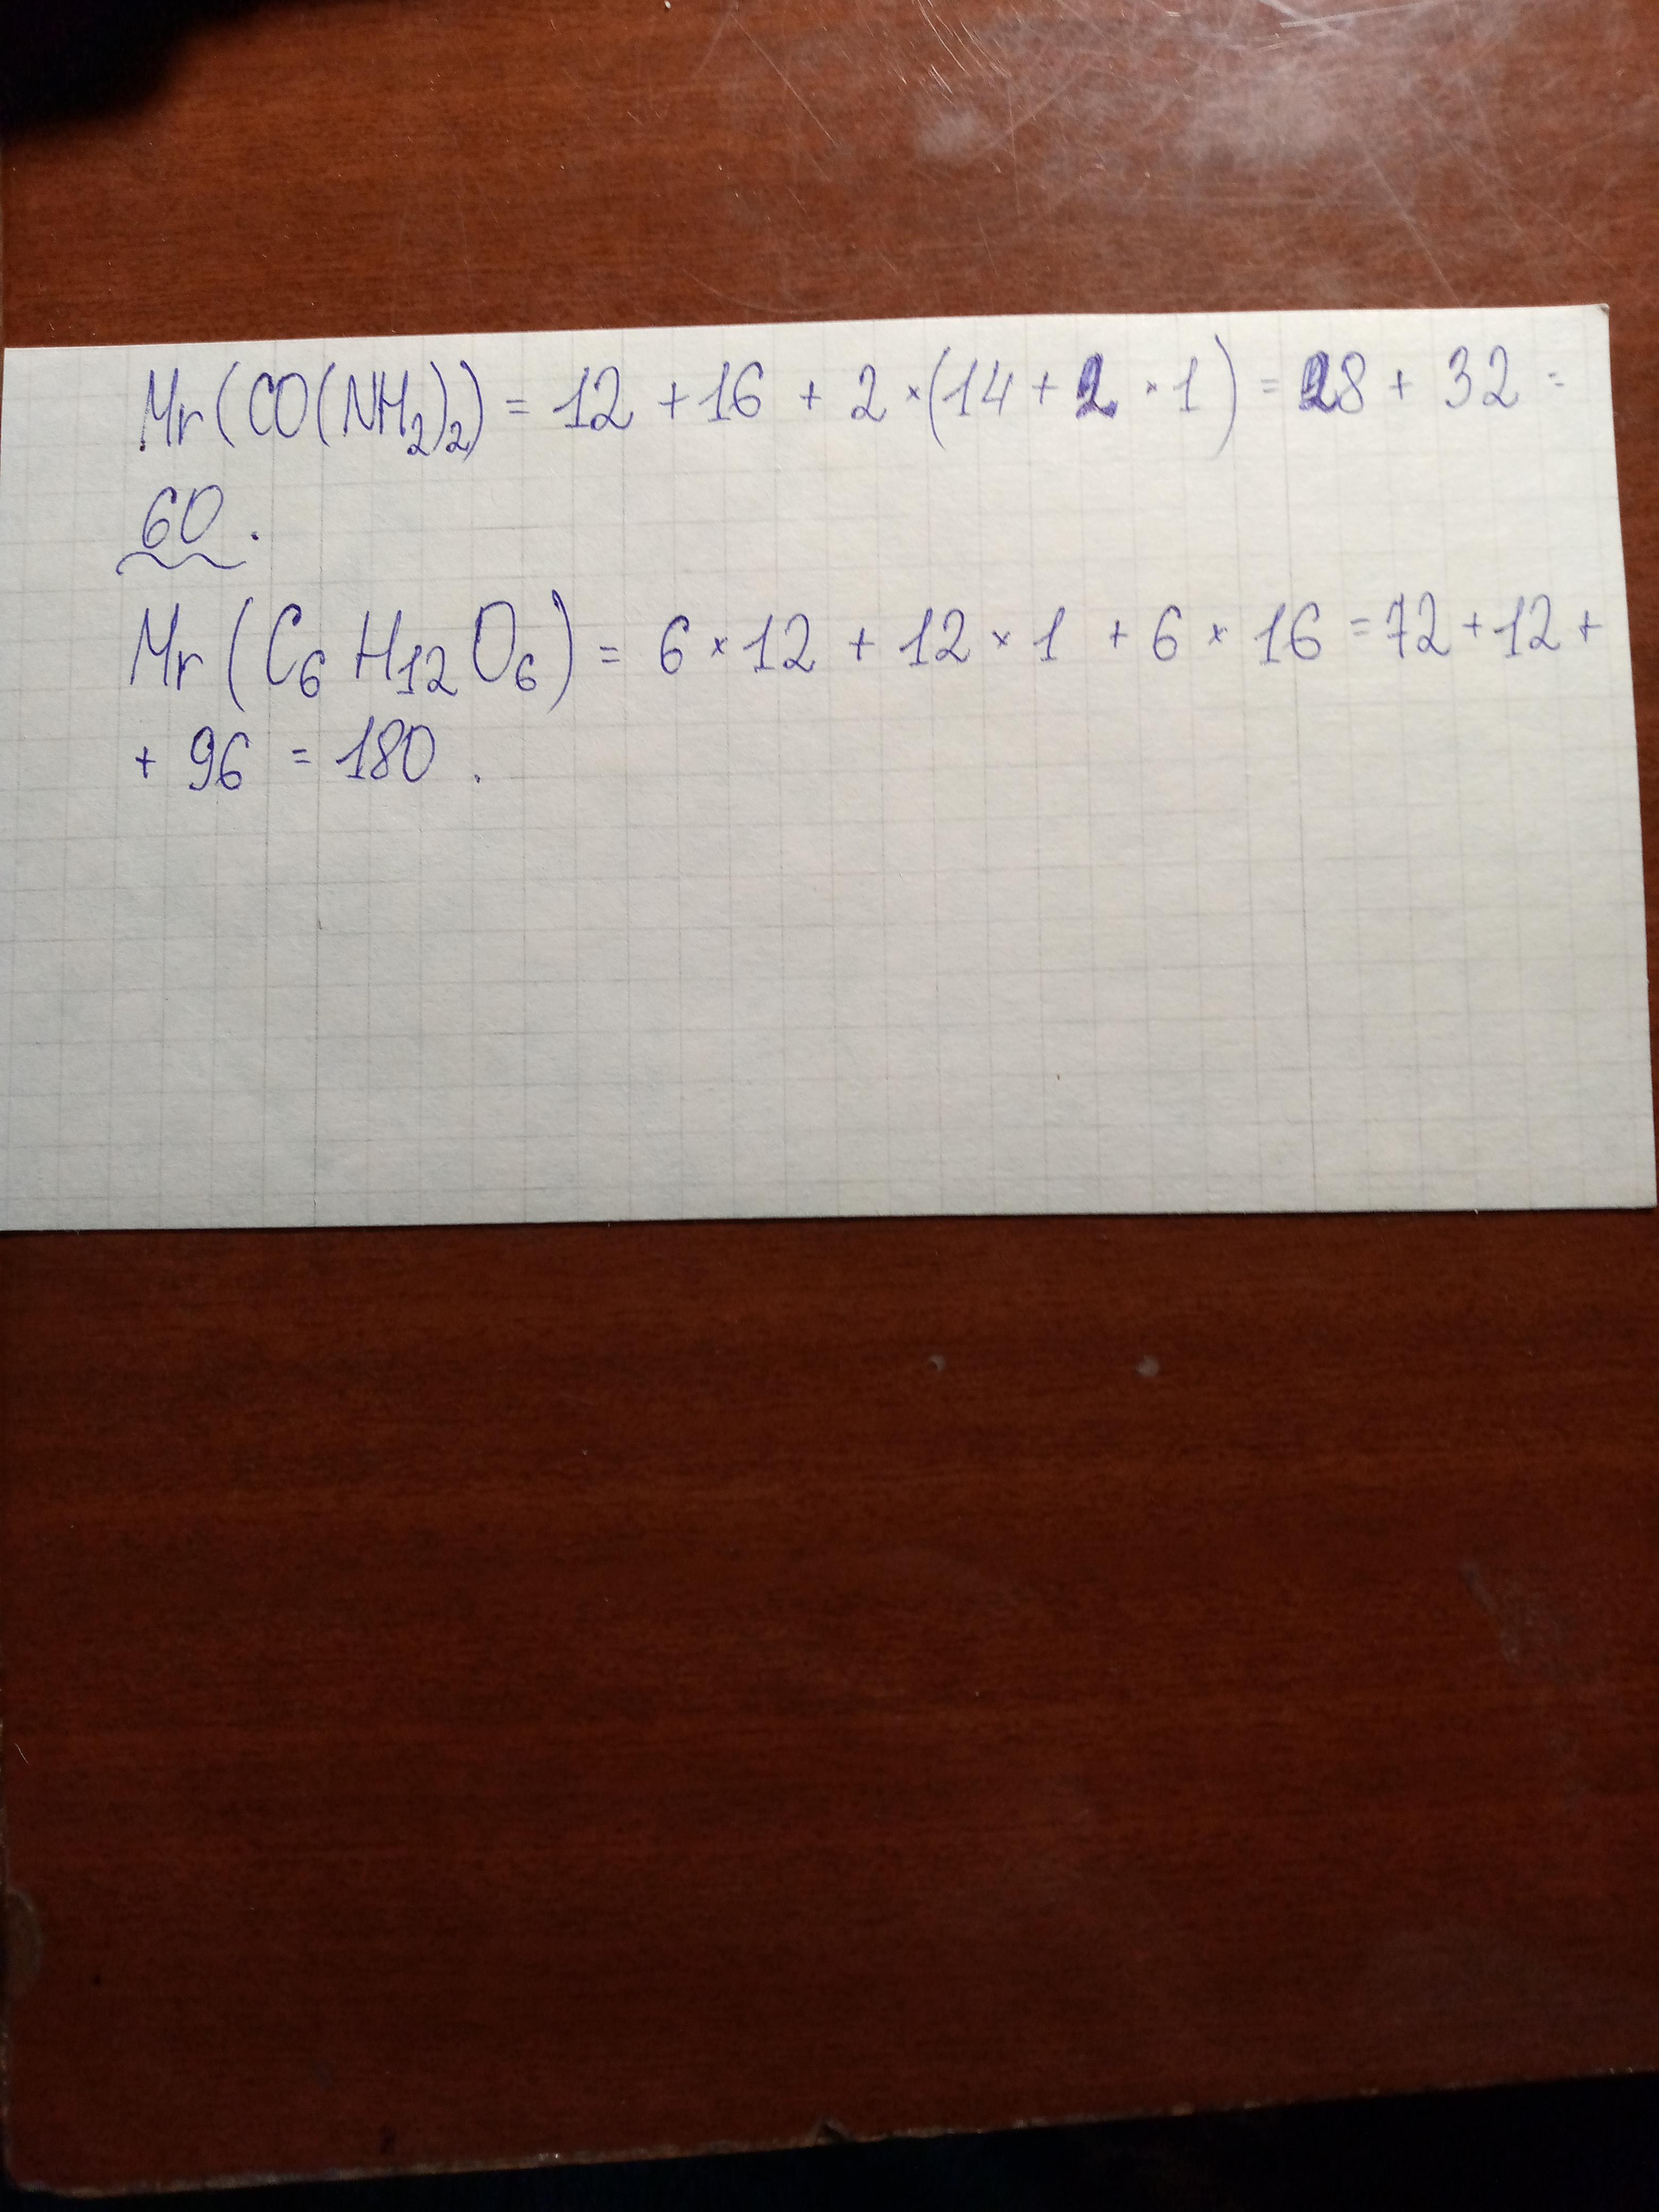 Mr(CO(NH₂)₂) = 12 + 16 + 2 × (14 + 2 × 1) = 28 + 32 =
60.
Mr(C₆H₁₂O₆) = 6 × 12 + 12 × 1 + 6 × 16 = 72 + 12 +
+ 96 = 180.